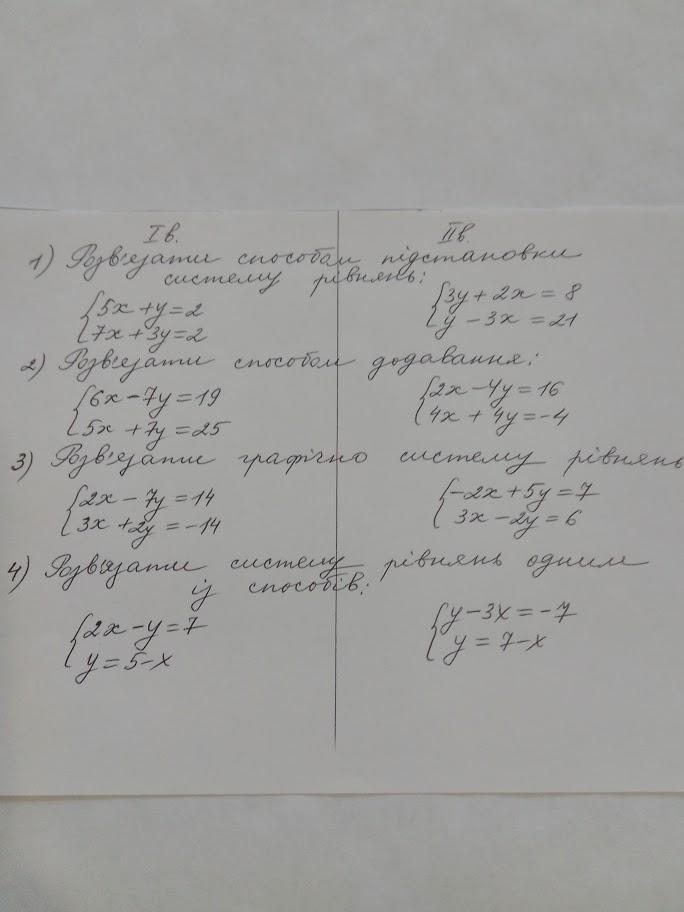 Iв.
IIв.
1) Розв'язати способом підстановки
систему рівнянь:
5x + y = 2
7x + 3y = 2
3y + 2x = 8
y - 3x = 21
2) Розв'язати способом додавання:
6x - 7y = 19
5x + 7y = 25
2x - 4y = 16
4x + 4y = -4
3) Розв'язати графічно систему рівнянь
2x - 7y = 14
3x + 2y = -14
-2x + 5y = 7
3x - 2y = 6
4) Розв'язати систему рівнянь одним
із способів:
2x - y = 7
y = 5 - x
y - 3x = -7
y = 7 - x